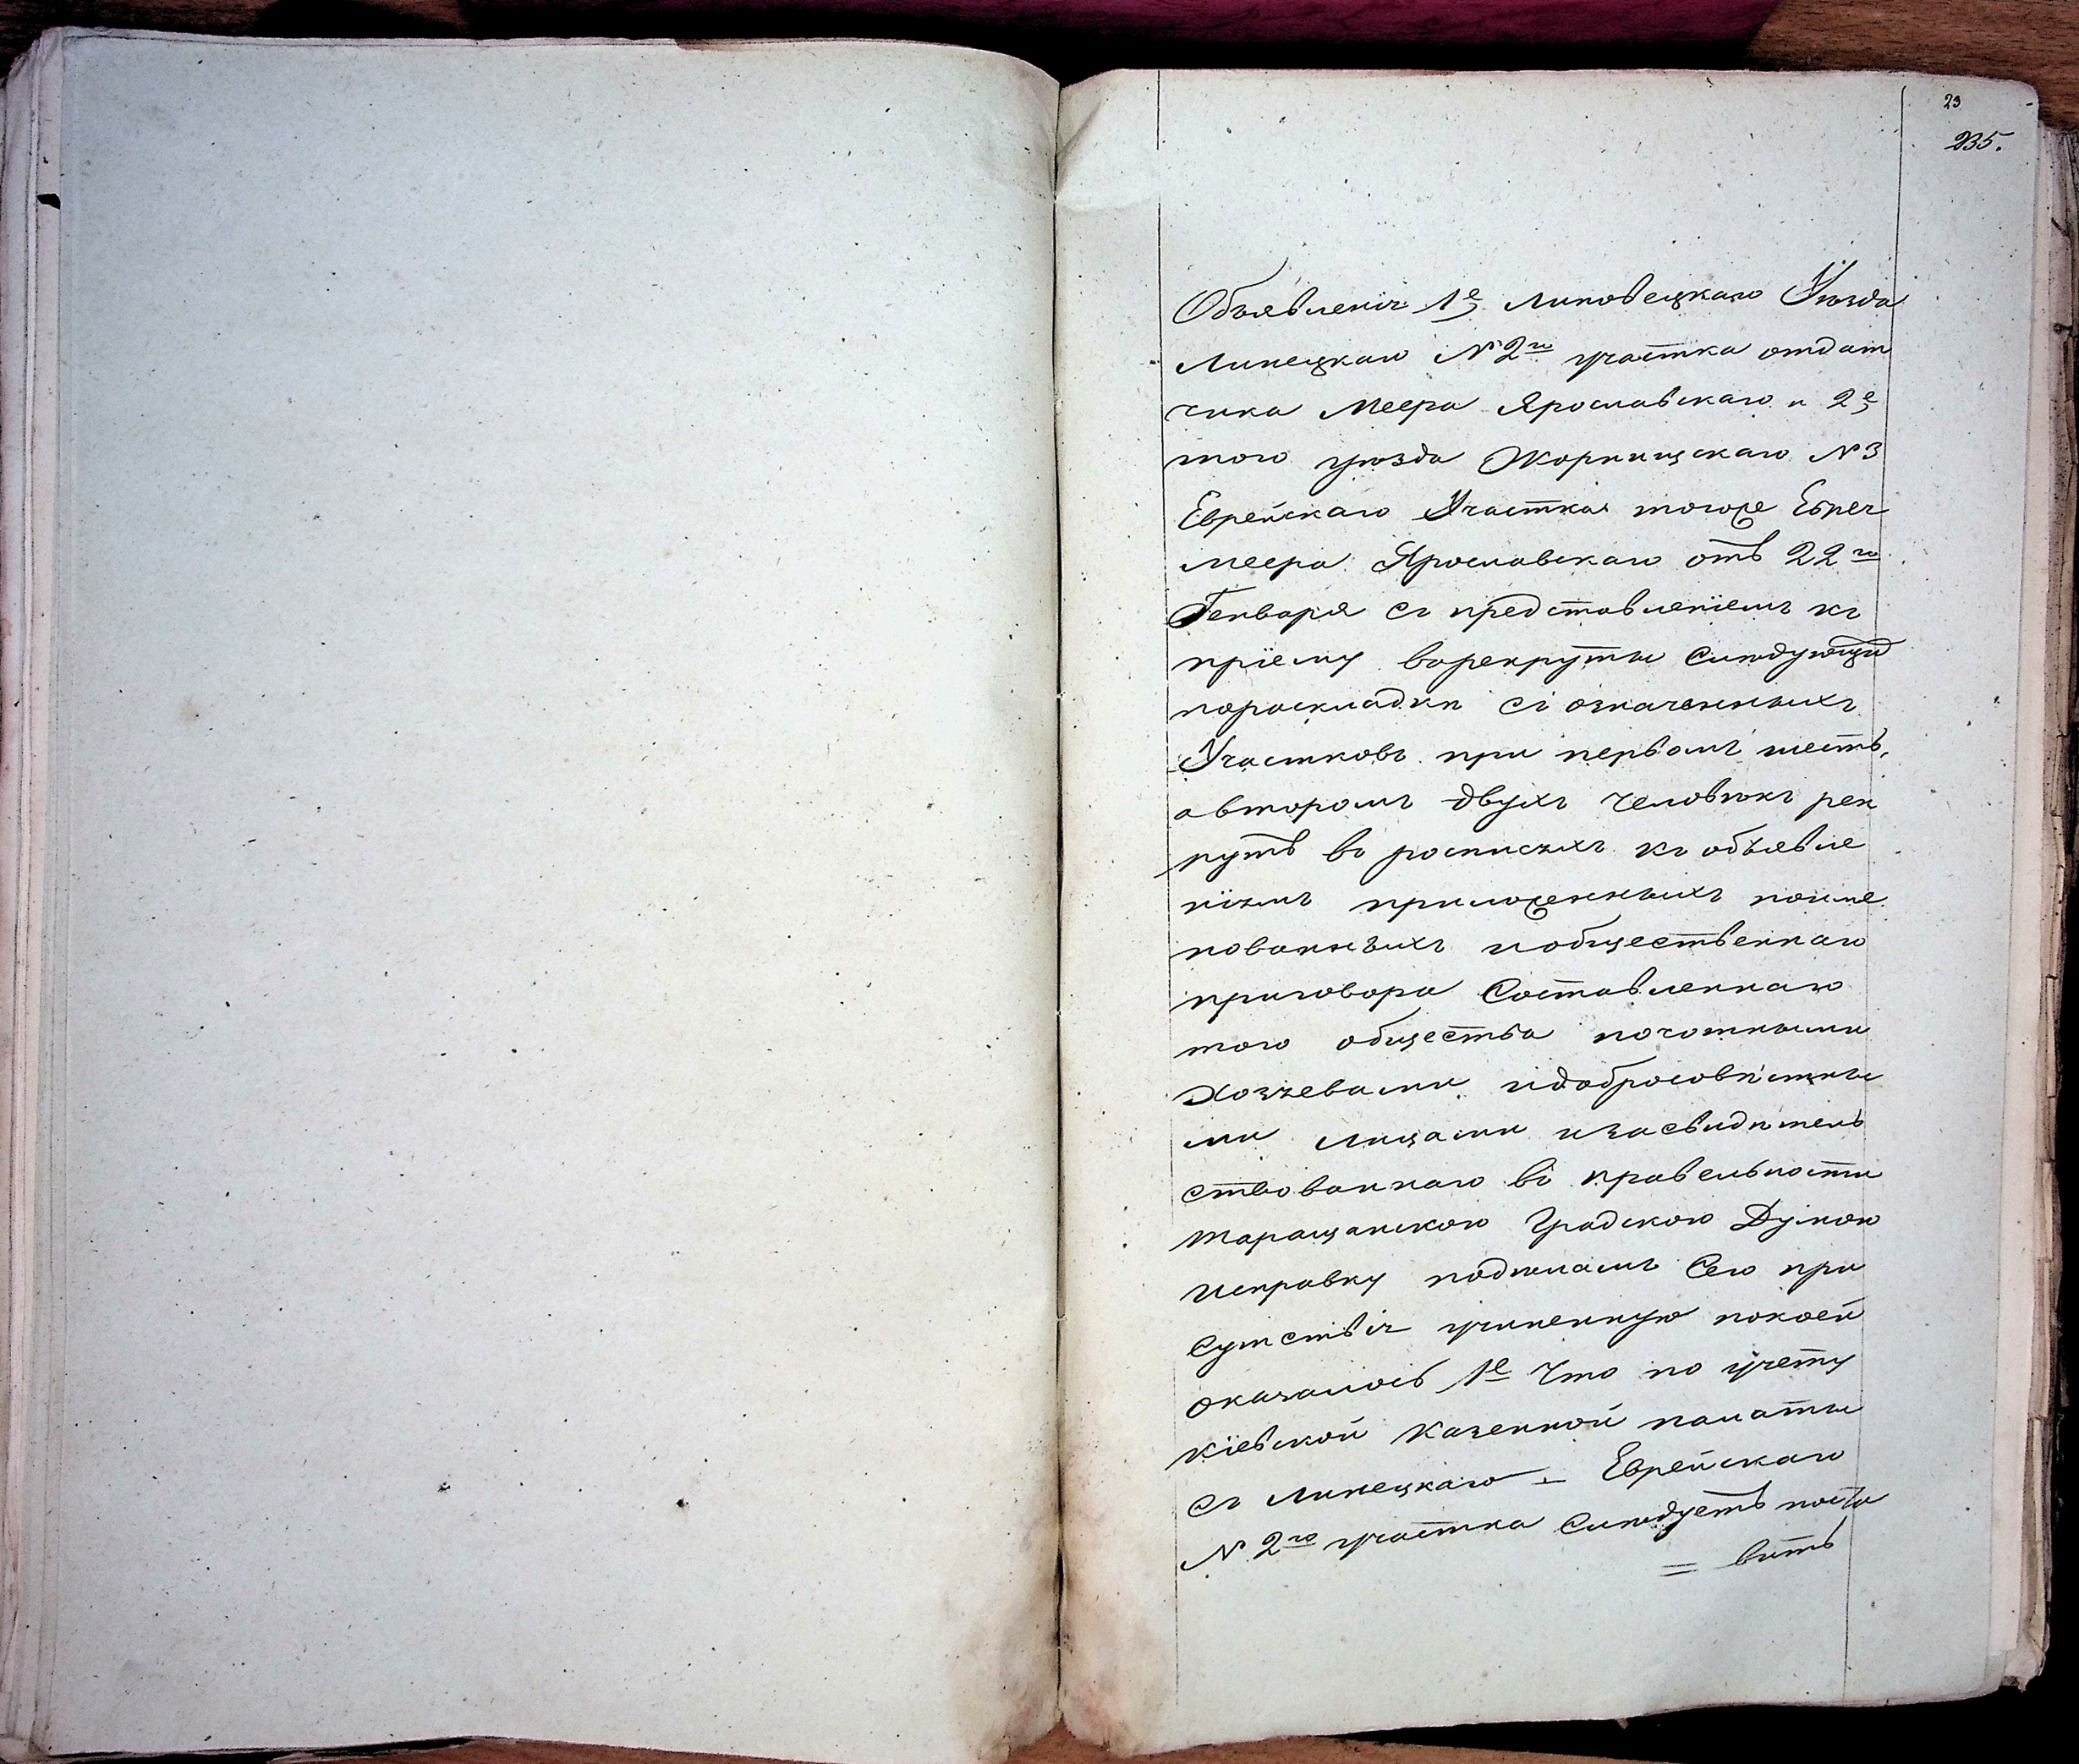 23
235.
Объявленія 1е Липовецкаго Уѣзда
Липецкаго №2го участка отдат
чика Меера Ярославскаго и 2е
того уѣзда Жорнищскаго №3
Еврейскаго Участка тогоже Еврея
меера Ярославскаго отъ 22го
Генваря съ представленіемъ къ
пріему ворекруты Слѣдующих
пораскладки съ означенныхъ
Участковъ при первомъ шесть,
авторомъ двухъ человѣкъ рек
рутъ въ росписяхъ къ объявле
ніямъ приложенныхъ поиме
нованныхъ иобщественнаго
приговора Составленнаго
того общества почотными
Хозяевами идобросовѣстны
ми лицами изасвидѣтель
ствованнаго въ правельности
таращанскою Градскою Думою
исправку подѣламъ Сего при
Сутствія учиненную покоей
оказалось 1е Что по учету
кіевской Казенной палаты
съ липецкаго Еврейскаго
№ 2го участка Слѣдуетъ поста
= вить